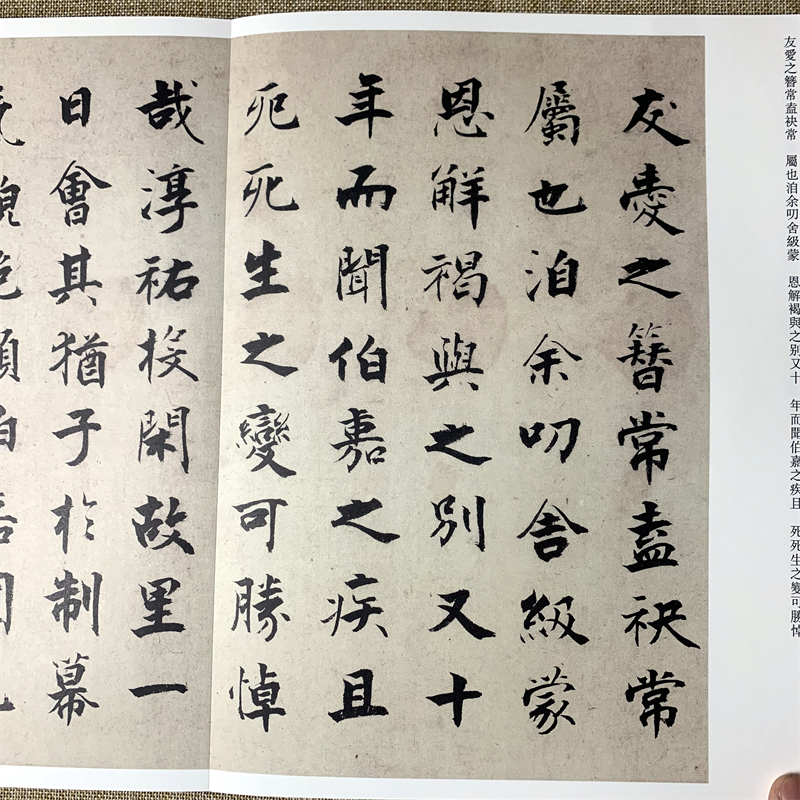 友愛之簪常盍袂常　屬也洎余叨舍級蒙　恩解褐與之别又十　年而聞伯嘉之疾且　死死生之變可勝悼
友愛之簪常盍袂常
屬也洎余叨舍級蒙
恩解褐與之別又十
年而聞伯嘉之疾且
死死生之變可勝悼
哉淳祐投閑故里一
日會其猶子於制幕